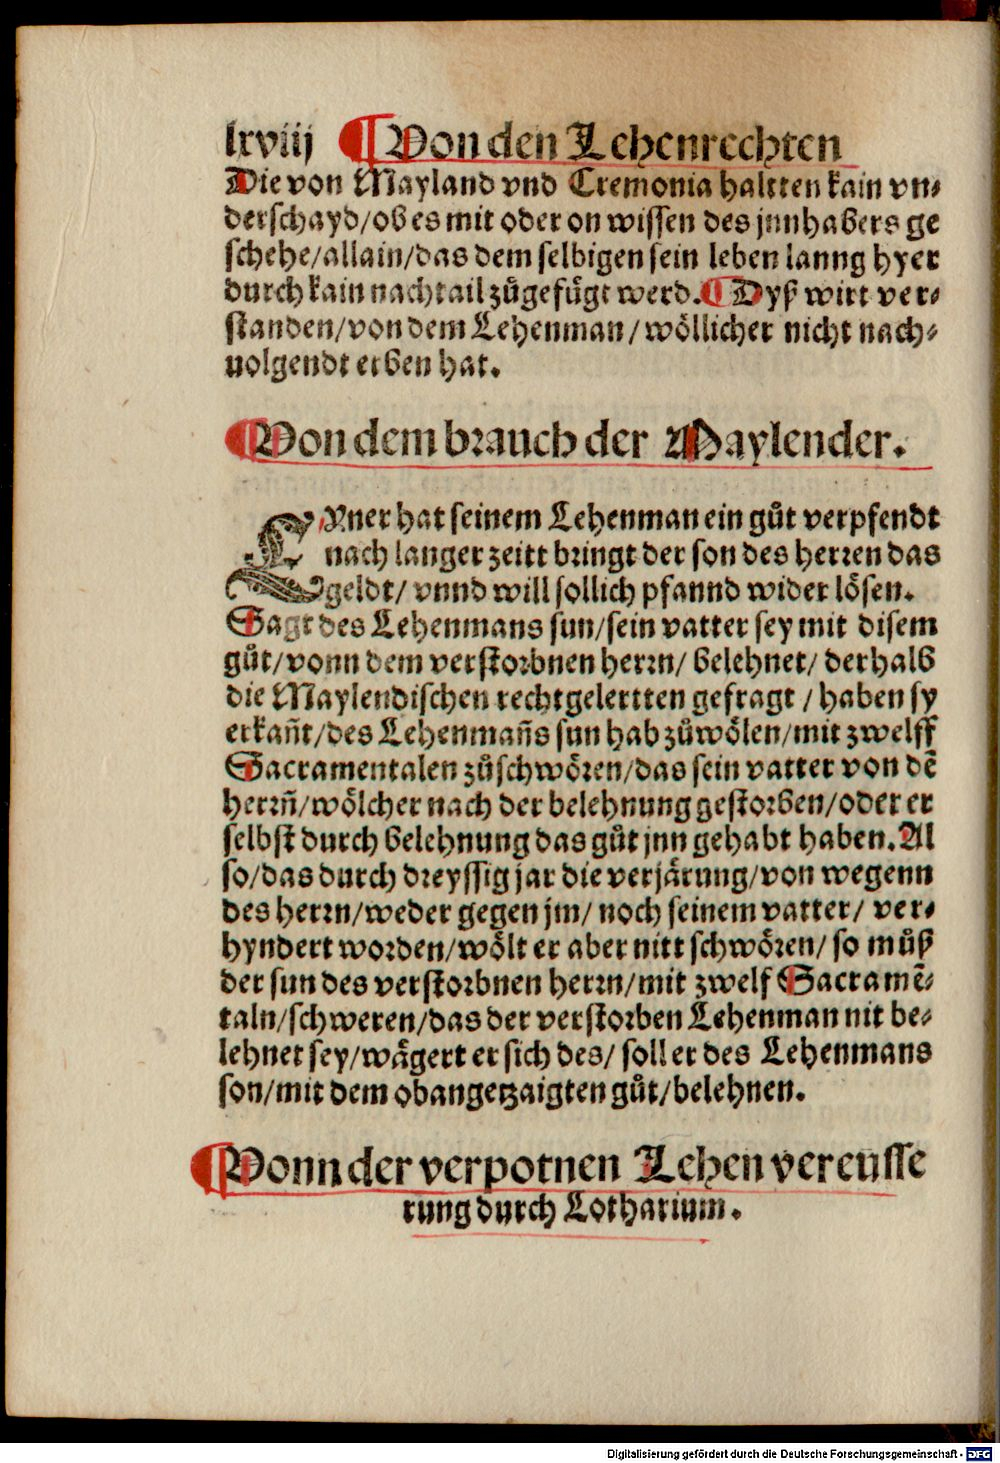 lxviij ¶ Von den Lehenrechten
Die von Mayland vnd Cremonia haltten kain vn⸗
derschayd/ob es mit oder on wissen des jnnhabers ge
schehe/allain/das dem selbigen sein leben lanng hyer
durch kain nachtail zůgefůgt werd. ¶ Dyß wirt ver⸗
standen/von dem Lehenman/wöllicher nicht nach⸗
uolgendt erben hat.
¶ Von dem brauch der Maylender.
EYner hat seinem Lehenman ein gůt verpfendt
nach langer zeitt bringt der son des herren das
geldt/ vnnd will sollich pfannd wider lösen.
Sagt des Lehenmans sun/sein vatter sey mit disem
gůt/vonn dem verstorbnen herrn/ belehnet/ derhalb
die Maylendischen rechtgelertten gefragt /haben sy
erkañt/des Lehenmañs sun hab zůwölen/mit zwelff
Sacramentalen zůschwören/das sein vatter von dẽ
herrñ/wölcher nach der belehnung gestorben/oder er
selbst durch belehnung das gůt jnn gehabt haben. Al
so/das durch dreyssig jar die verjärung/von wegenn
des herrn/weder gegen jm/ noch seinem vatter/ ver⸗
hyndert worden/wölt er aber nitt schwören/ so můß
der sun des verstorbnen herrn/mit zwelf Sacramẽ⸗
taln/schweren/das der verstorben Lehenman nit be⸗
lehnet sey/wägert er sich des/ soll er des Lehenmans
son/mit dem obangetzaigten gůt/belehnen.
¶ Vonn der verpotnen Lehen vereusse
rung durch Lotharium.
Digitalisierung gefördert durch die Deutsche Forschungsgemeinschaft - DFG